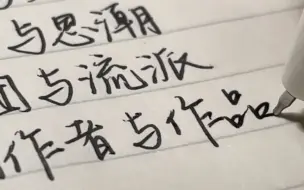 与思潮
与流派
作者与作品